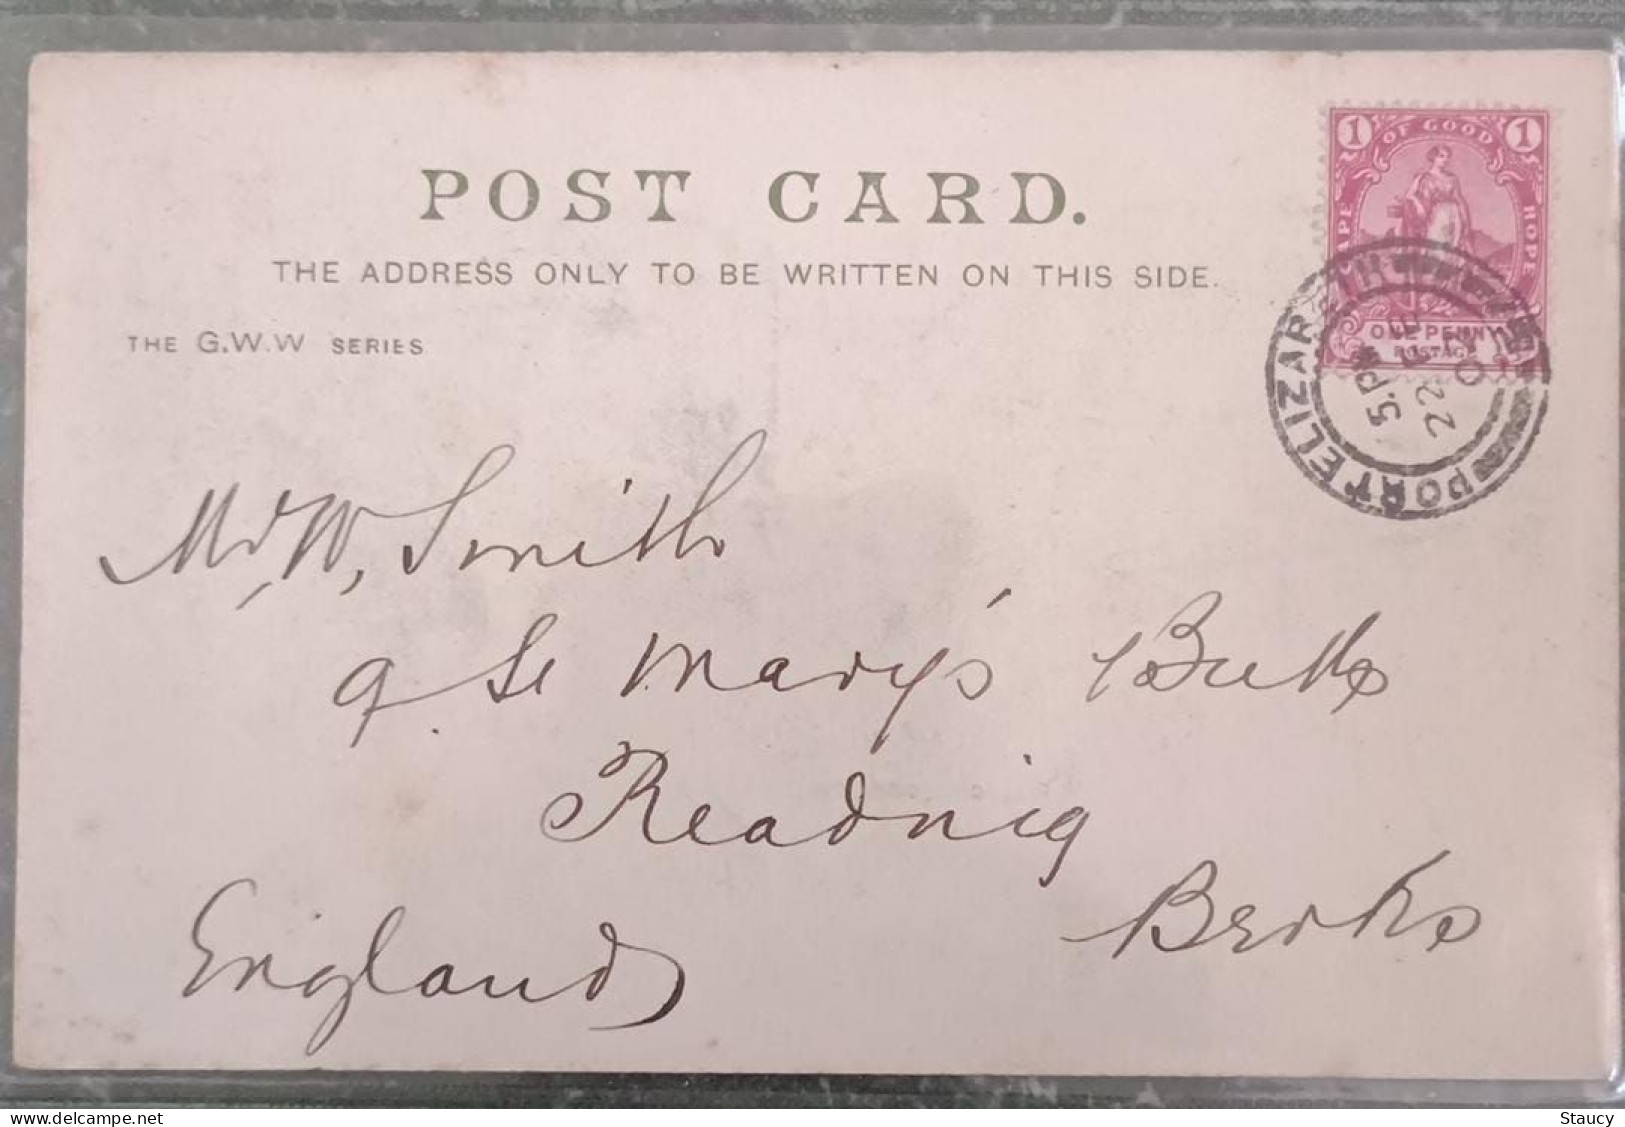 POST CARD.
THE ADDRESS ONLY TO BE WRITTEN ON THIS SIDE.
THE G.W.W SERIES
1 OF GOOD 1
CAPE HOPE
ONE PENNY
POSTAGE
PORT ELIZABETH
5.PM
22
Mr W, Smith
9 St Mary's Butts
Reading
Berks
England
Staucy